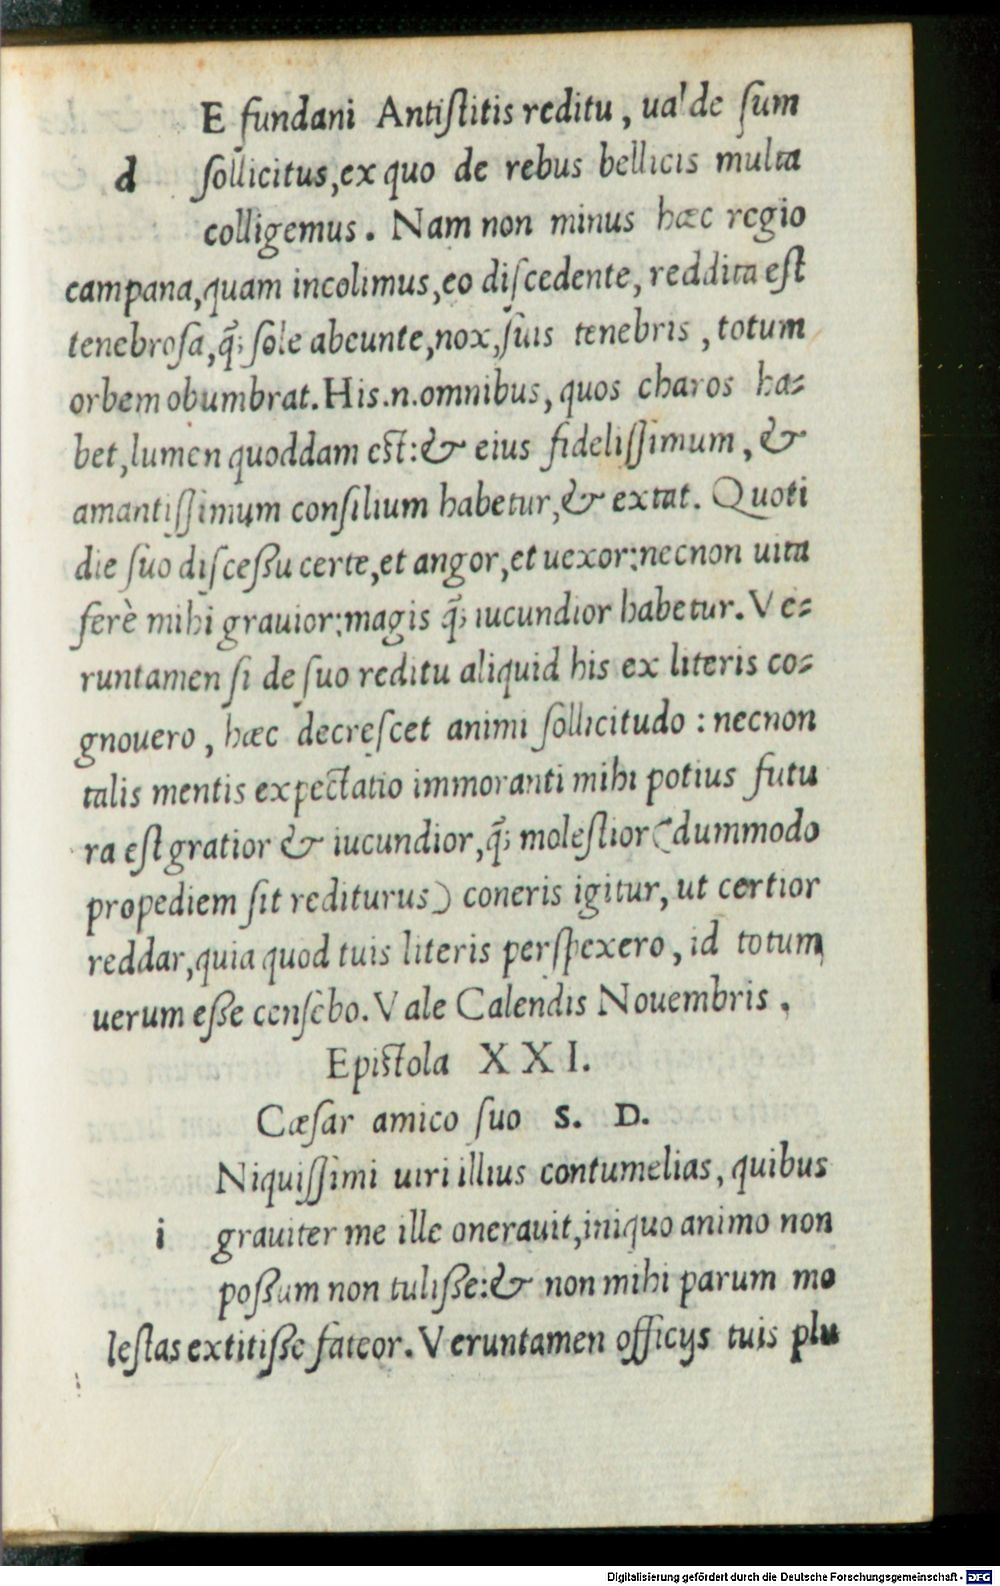 E fundani Antiſtitis reditu, ualde ſum
d ſollicitus,ex quo de rebus bellicis multa
colligemus. Nam non minus hæc regio
campana,quam incolimus,eo diſcedente, reddita eſt
tenebroſa,q̃; ſole abeunte,nox,ſuis tenebris, totum
orbem obumbrat.His.n.omnibus, quos charos ha-
bet,lumen quoddam eſt:& eius fideliſſimum, &
amantiſſimum conſilium habetur,& extat. Quoti
die ſuo diſceßu certe,et angor,et uexor:necnon uita
ferè mihi grauior:magis q̃; iucundior habetur.Ve-
runtamen ſi de ſuo reditu aliquid his ex literis co-
gnouero, hæc decreſcet animi ſollicitudo: necnon
talis mentis expectatio immoranti mihi potius futu
ra eſt gratior & iucundior,q̃; moleſtior(dummodo
propediem ſit rediturus) coneris igitur, ut certior
reddar,quia quod tuis literis perſpexero, id totum
uerum eſſe cenſebo.Vale Calendis Nouembris.
Epiſtola XXI.
Cæſar amico ſuo S. D.
Niquiſſimi uiri illius contumelias, quibus
i grauiter me ille onerauit,iniquo animo non
poßum non tuliße:& non mihi parum mo
leſtas extitiße fateor.Veruntamen officijs tuis plu
Digitalisierung gefördert durch die Deutsche Forschungsgemeinschaft - DFG